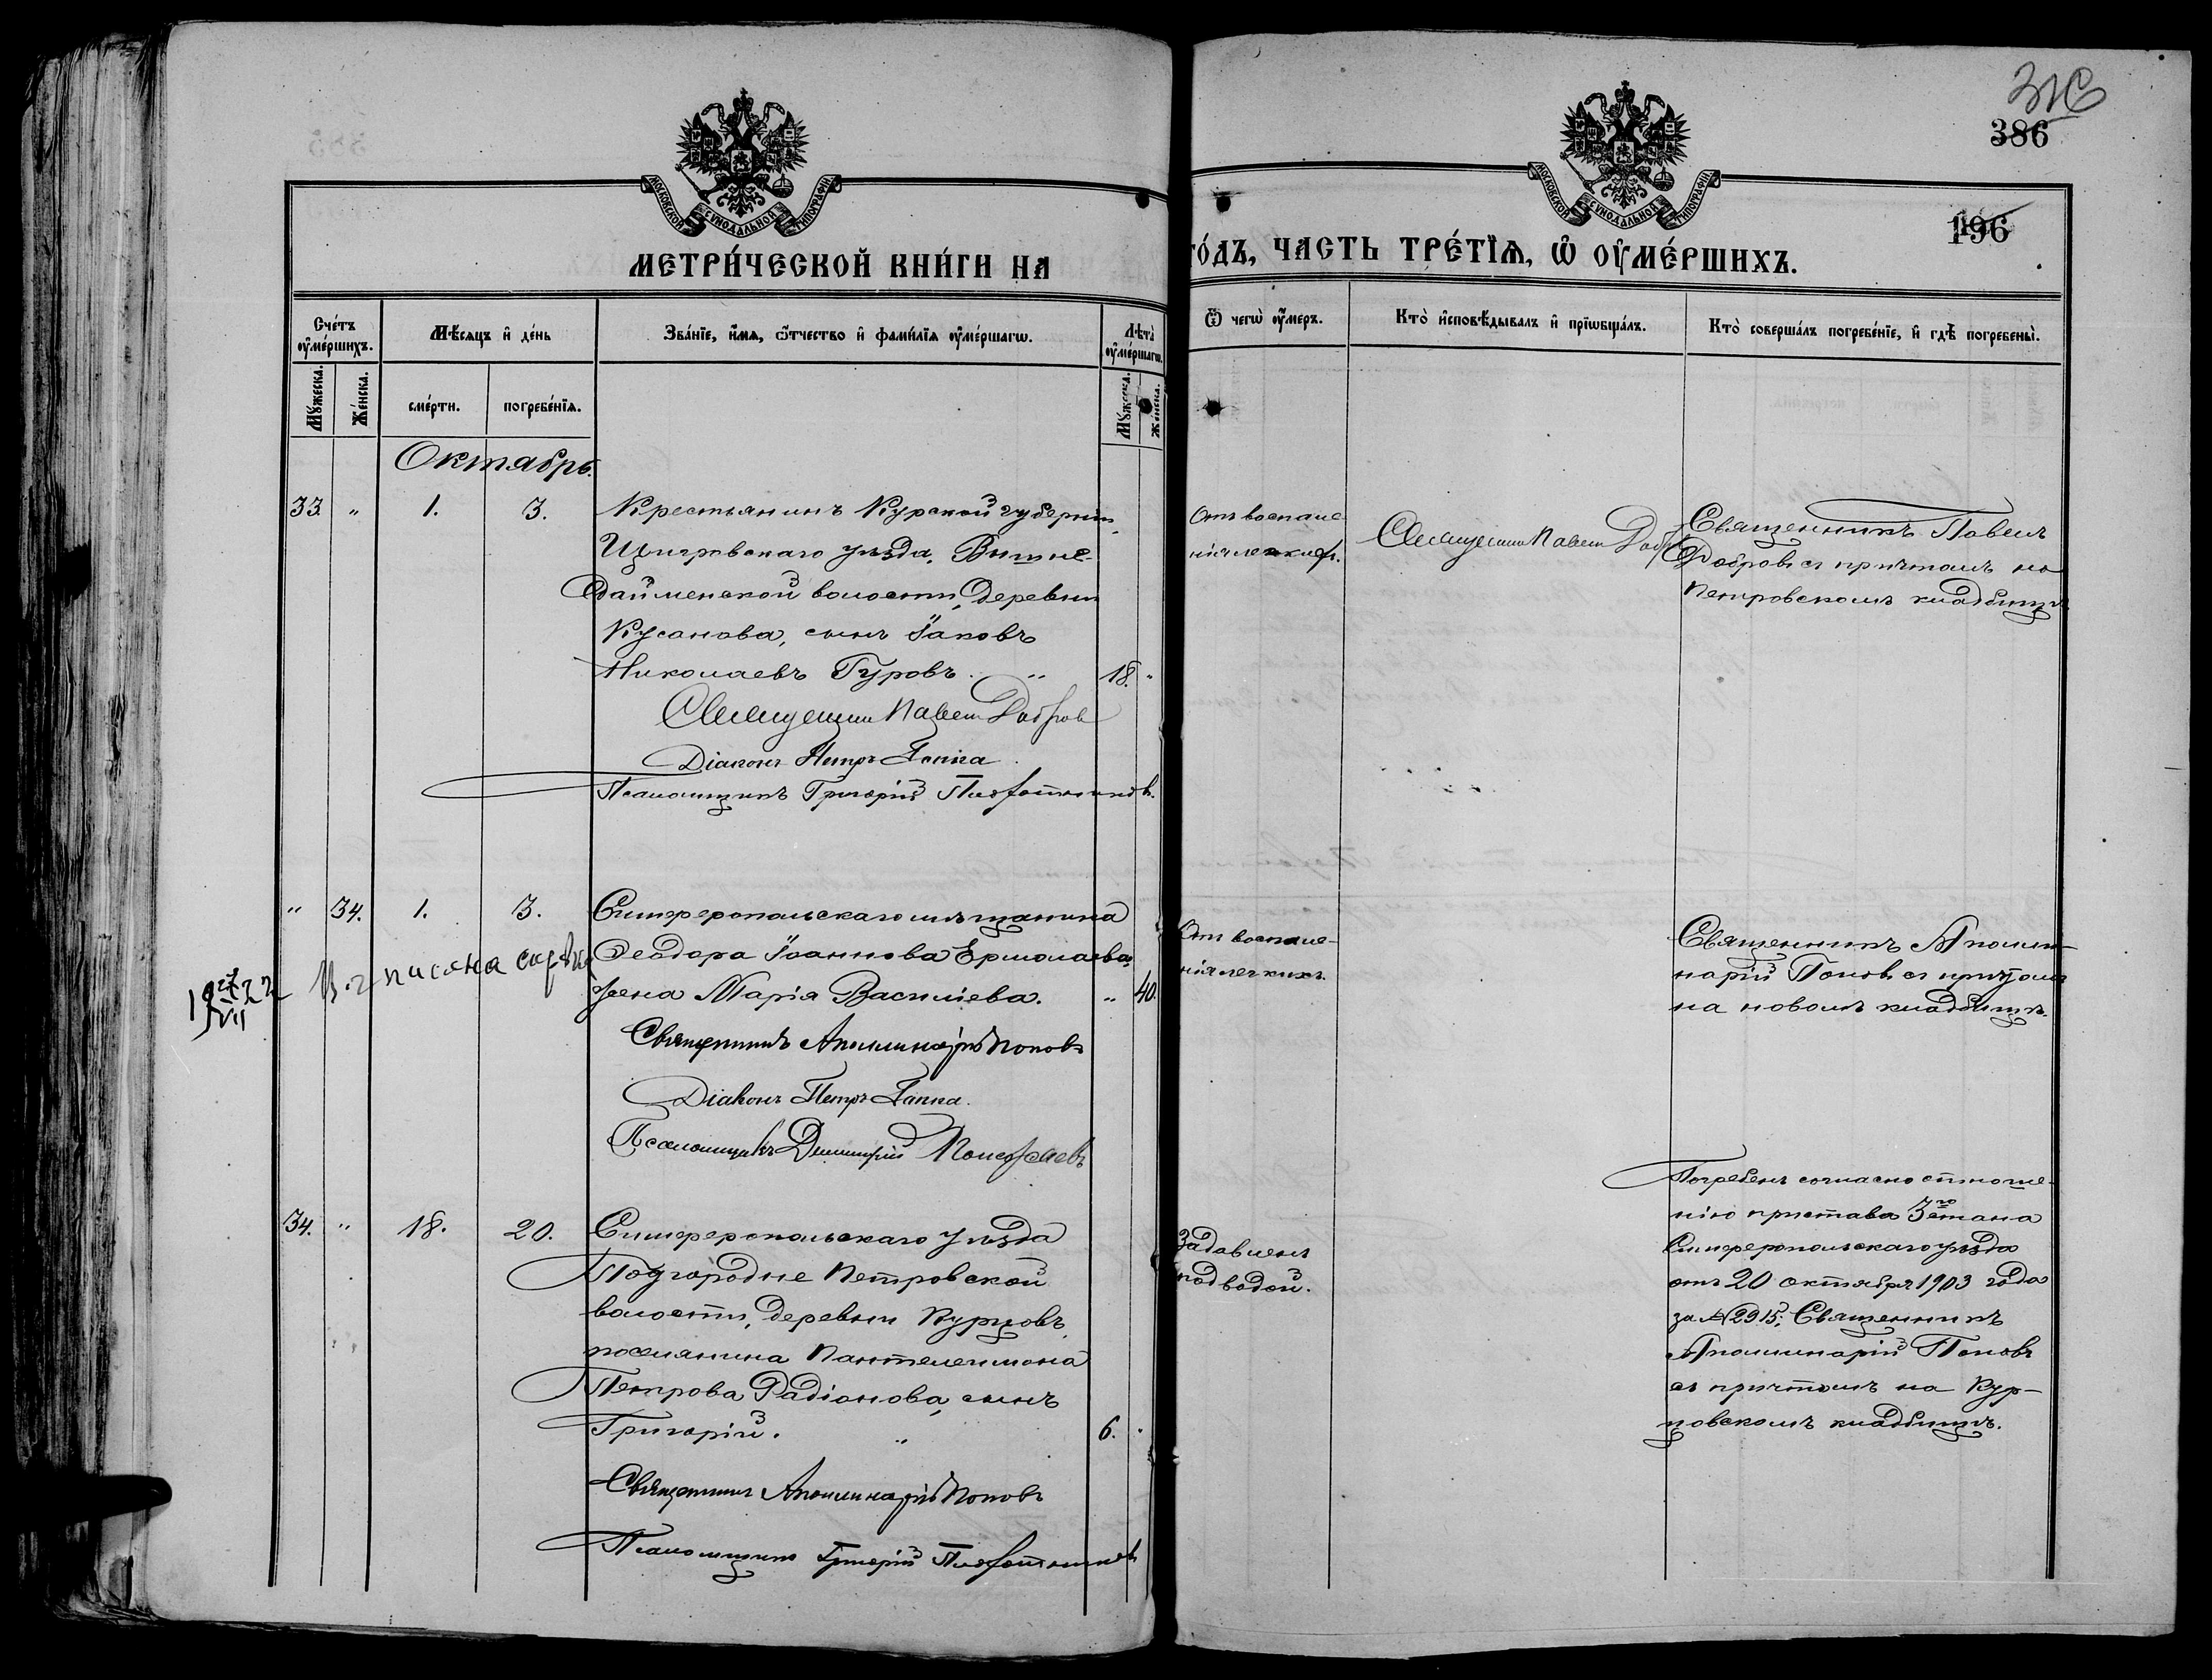 316
386
196
МОСКОВСКОЙ СѴНОДАЛЬНОЙ ТИПОГРАФІИ
МОСКОВСКОЙ СѴНОДАЛЬНОЙ ТИПОГРАФІИ
МЕТРИ́ЧЕСКОЙ КНИ́ГИ НА
ГО́ДЪ, ЧАСТЬ ТРЕ́ТІѦ, Ѽ ОУ҆МЕ́РШИХЪ.
Сче́тъ оу҆ме́ршихъ.
Мѣ́сяцъ и҆ де́нь
Зва́нїе, и҆́мя, ѻ҆́тчество и҆ фами́лїя оу҆ме́ршагѡ.
Лѣ́та оу҆ме́ршагѡ.
Ѿ чегѡ̀ оу҆́меръ.
Кто̀ и҆сповѣ́дывалъ и҆ прїѡбща́лъ.
Кто̀ соверша́лъ погребе́нїе, и҆ гдѣ̀ погребены̀.
Мꙋ́жеска.
Же́нска.
сме́рти.
погребе́нїя.
Мꙋ́жеска.
Же́нска.
Октябрь.
33. " 1. 3. Крестьянинъ Курской губерніи,
Щигровскаго уѣзда, Вышне-
Дайменской волости, деревни
Кусанова, сынъ Іаковъ
Николаевъ Гуровъ. " 18. "
Священникъ Павелъ Добровъ
Діаконъ Петръ Гапка
Псаломщикъ Григорій
Отъ воспале-
нія легкихъ.
Священникъ Павелъ Добровъ
Священникъ Павелъ
Добровъ съ причтомъ на
Петровскомъ кладбищѣ
" 34. 1. 3. Симферопольскаго мѣщанина
Ѳеодора Іоаннова Ермолаева,
жена Марія Васильева. " 40.
Священникъ Аполлинарій Поповъ
Діаконъ Петръ Гапка.
Псаломщикъ Димитрій
19 VII 22
писана
Отъ воспале-
нія легкихъ.
Священникъ Аполли-
нарій Поповъ съ причтомъ
на новомъ кладбищѣ.
34. " 18. 20. Симферопольскаго уѣзда
Подгородне Петровской
волости, деревни Курцовъ,
поселянина Пантелеимона
Петрова Радіонова, сынъ
Григорій. " 6. "
Священникъ Аполлинарій Поповъ
Псаломщикъ Григорій
Задавленъ
подводой.
Погребенъ согласно отноше-
нію пристава 3го стана
Симферопольскаго уѣзда
отъ 20 октября 1903 года
за № 2915; Священникъ
Аполлинарій Поповъ
съ причтомъ на Кур-
цовскомъ кладбищѣ.